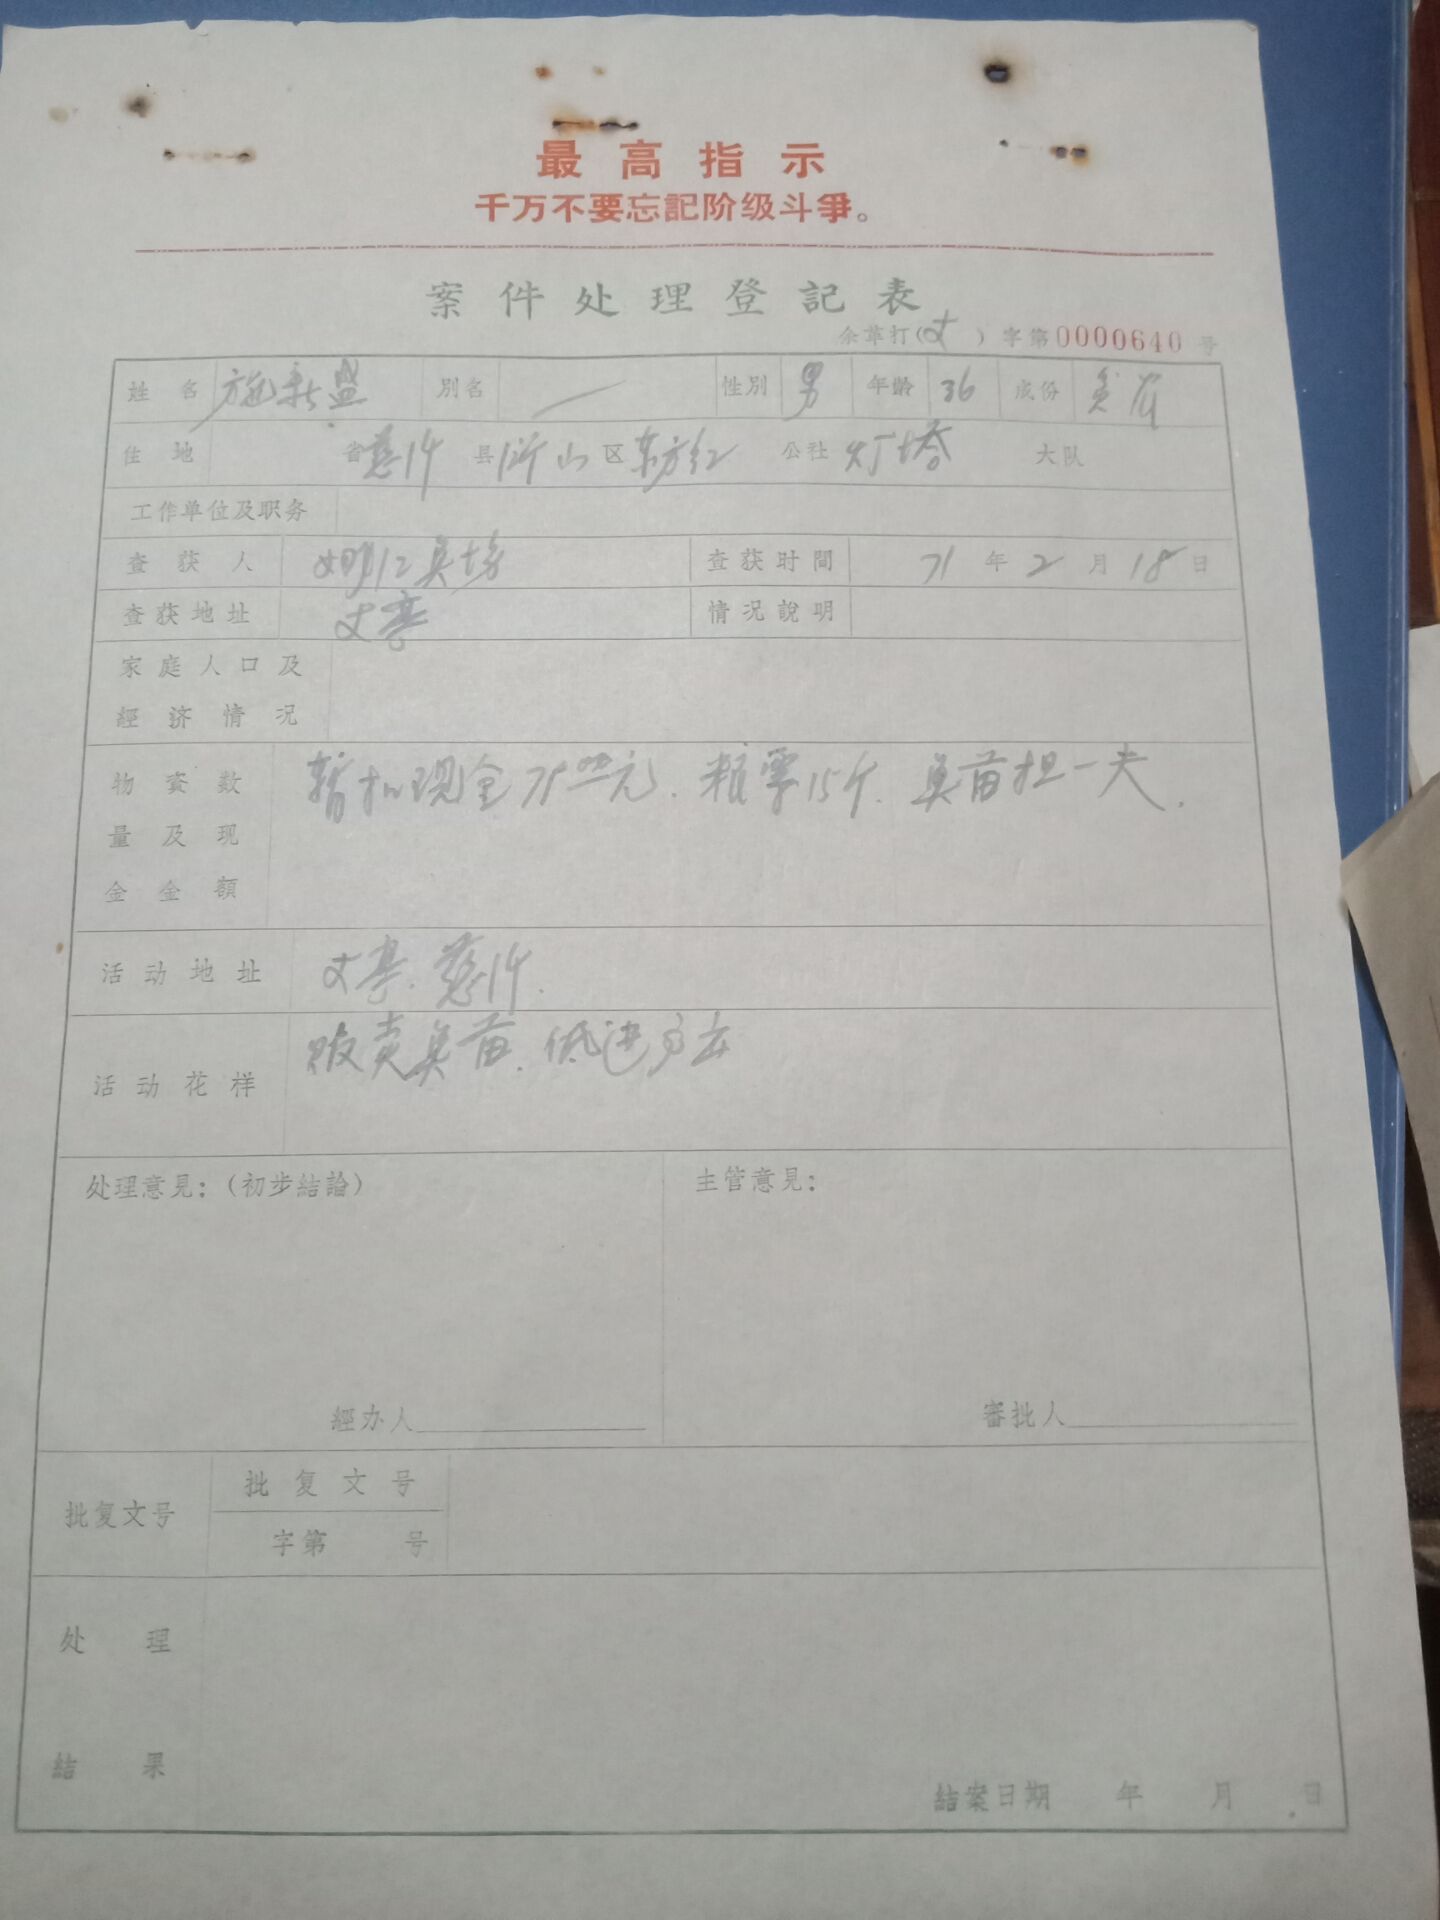 最高指示
千万不要忘記阶级斗爭。
案件处理登記表
余革打(丈)字第0000640号
姓名 施新盛 別名 一 性別 男 年齡 36 成份 贫农
住地 省慈谿 县 浒山 区 东方红 公社 灯塔 大队
工作单位及职务
查获人 查获时間 71年2月18日
查获地址 丈亭 情况說明
家庭人口及
經济情况
物资数 暂扣现金 元.粮票15斤.鱼苗担一夫.
量及现
金金額
活动地址 丈亭.慈谿.
活动花样 贩卖鱼苗.低进高去
处理意見：(初步結論) 主管意見：
經办人 審批人
批复文号 批复文号
字第 号
处理
結果
結案日期 年 月 日